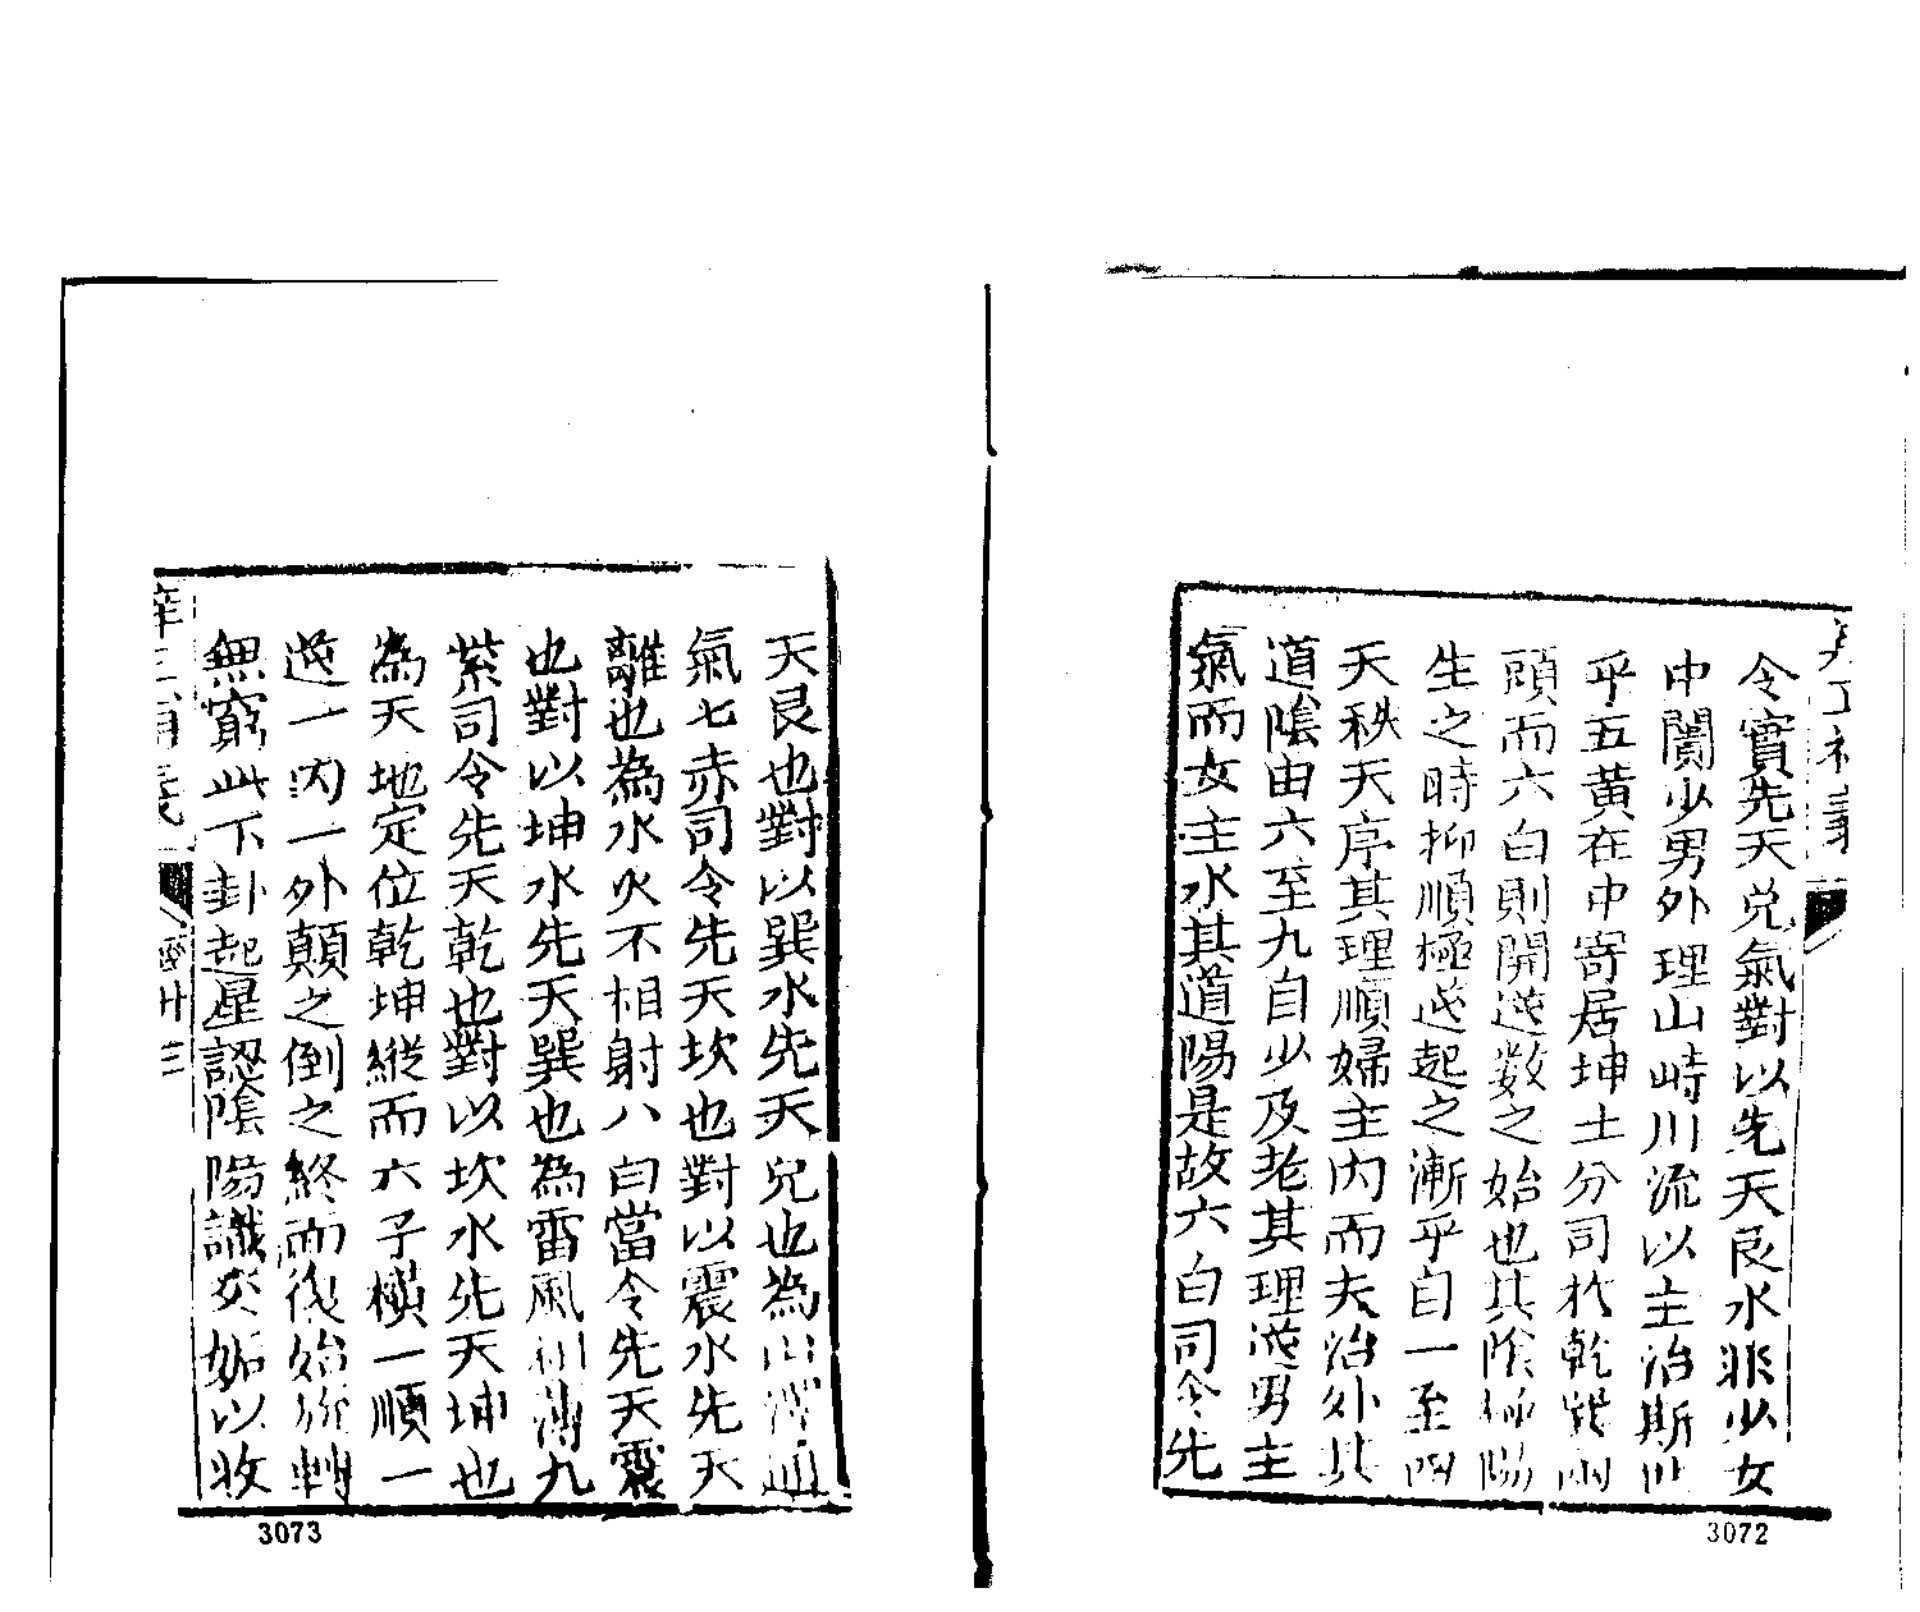 令實先天兌氣對以先天艮水非少女
中閫少男外理山峙川流以主治斯世
乎五黃在中寄居坤土分司於乾巽兩
頭而六白則開逆數之始也其陰極陽
生之時抑順極逆起之漸乎自一至四
天秩天序其理順婦主內而夫治外其
道陰由六至九自少及老其理逆男主
氣而女主水其道陽是故六白司令先
3072
天艮也對以巽水先天兌也為山澤通
氣七赤司令先天坎也對以震水先天
離也為水火不相射八白當令先天震
也對以坤水先天巽也為雷風相薄九
紫司令先天乾也對以坎水先天坤也
為天地定位乾坤縱而六子橫一順一
逆一內一外顛之倒之終而復始旋轉
無窮此下卦起星認陰陽識交媾以收
3073